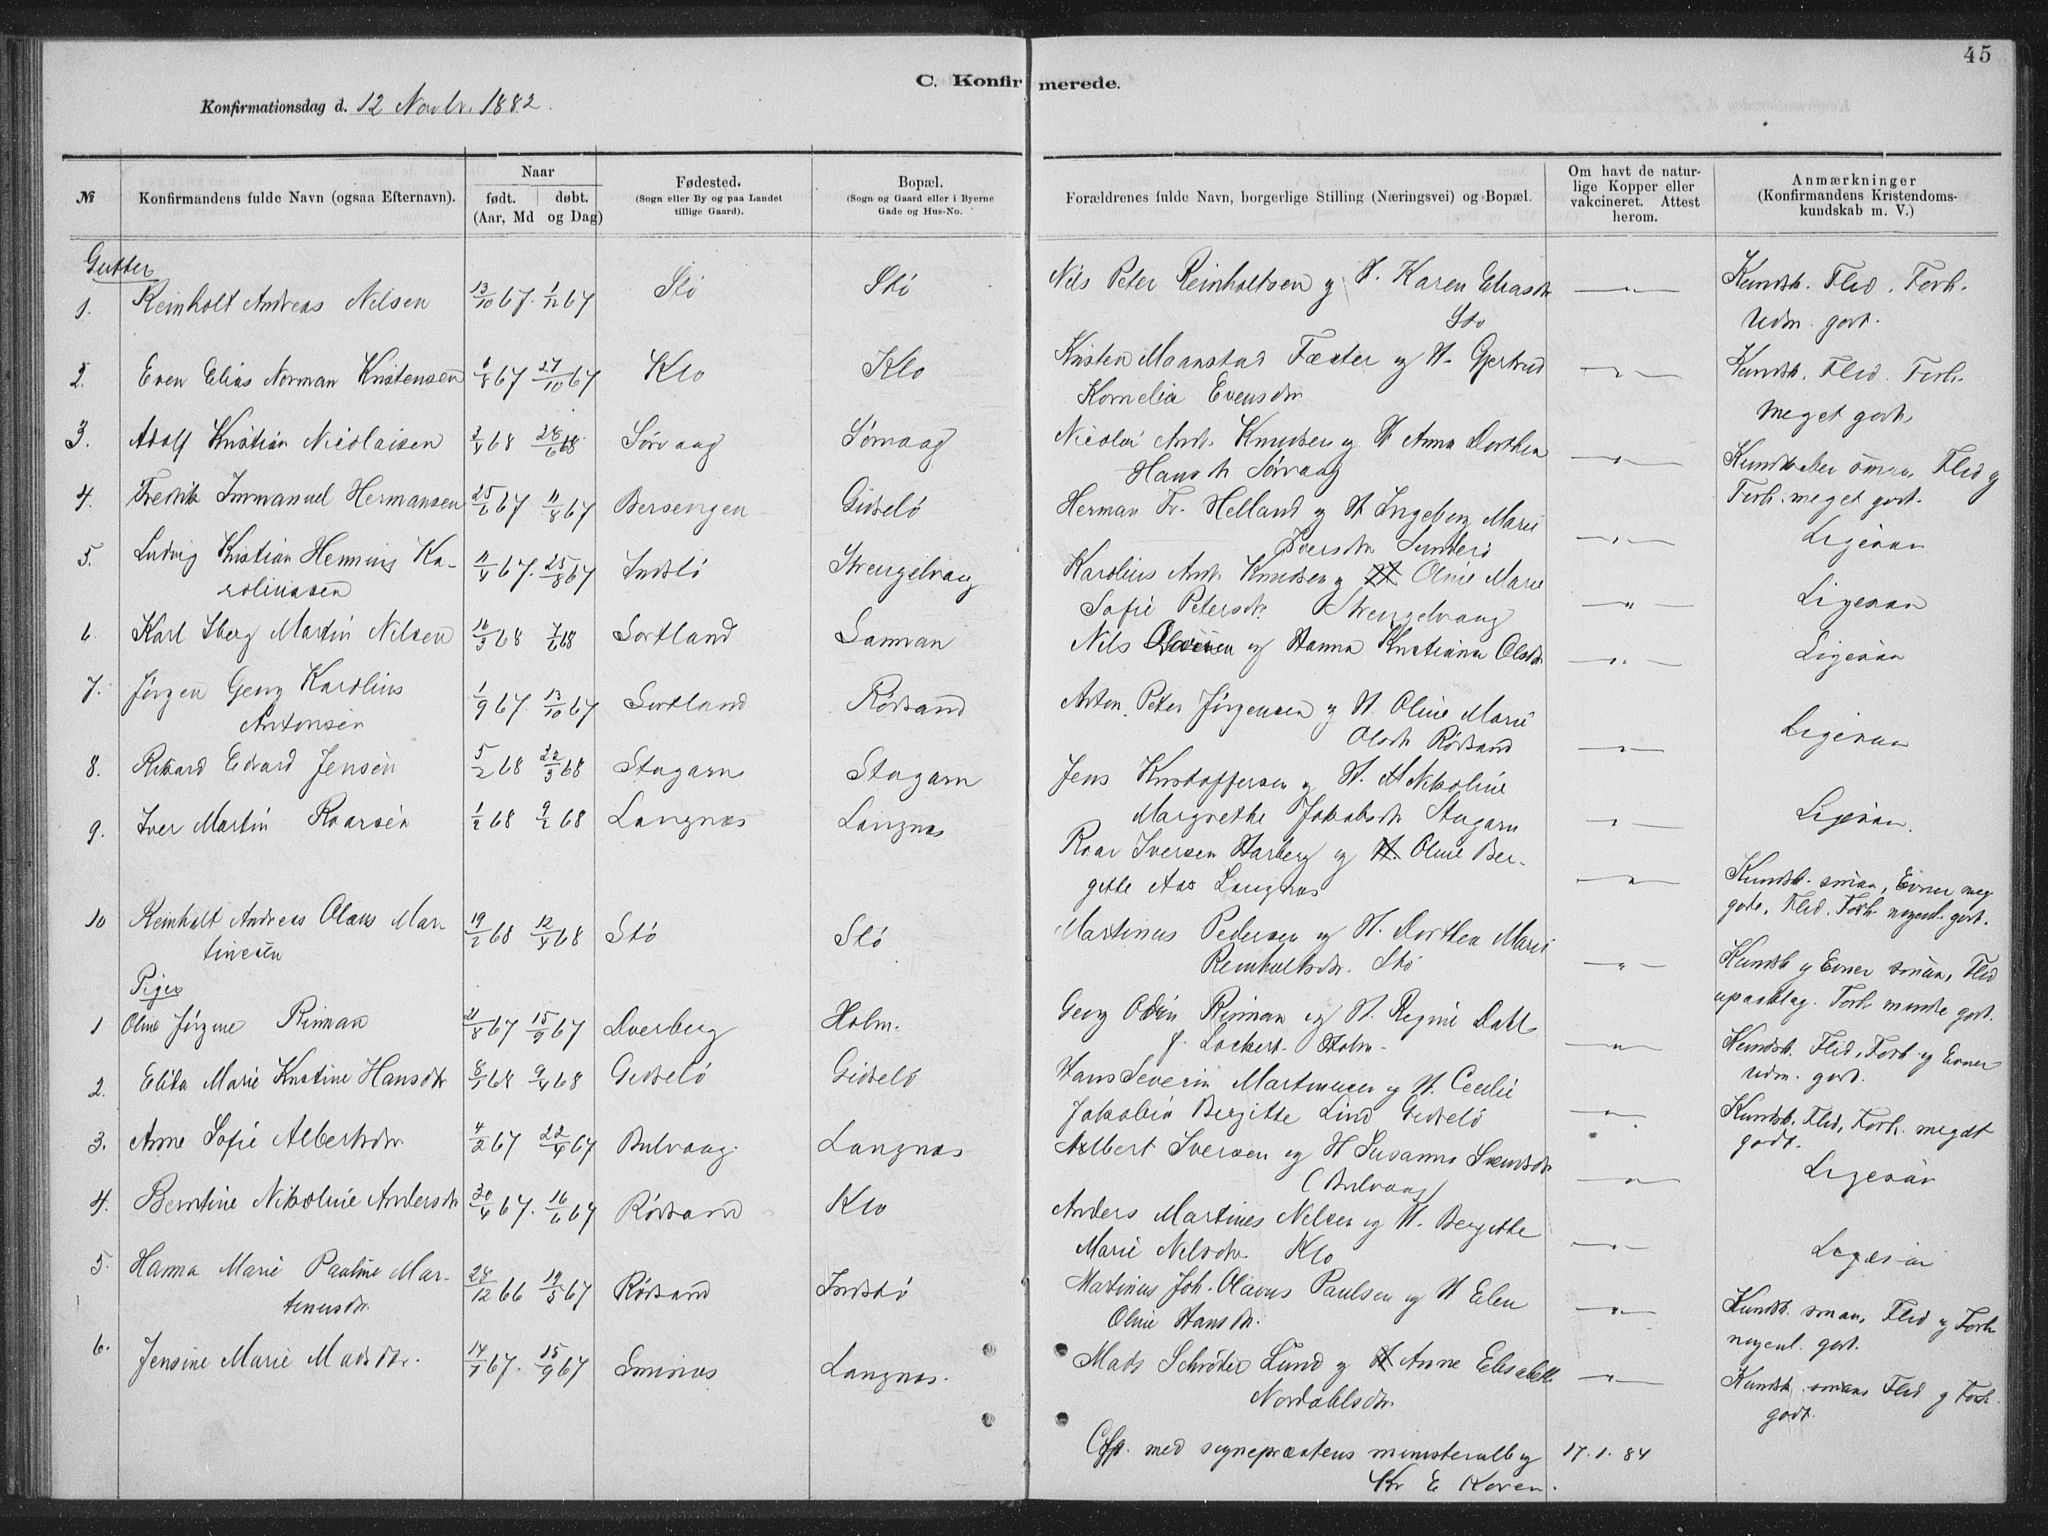 45
C. Konfirmerede.
Konfirmationsdag d. 12 Novbr. 1882.
№
Konfirmandens fulde Navn (ogsaa Efternavn).
Naar
født. døbt.
(Aar, Md og Dag)
Fødested.
(Sogn eller By og paa Landet
tillige Gaard).
Bopæl.
(Sogn og Gaard eller i Byerne
Gade og Hus-No.
Forældrenes fulde Navn, borgerlige Stilling (Næringsvei) og Bopæl.
Om havt de natur-
lige Kopper eller
vakcineret. Attest
herom.
Anmærkninger
(Konfirmandens Kristendoms-
kundskab m. V.)
Gutter
1. Reinholt Andreas Nilsen 13/10 67. 1/12 67 Stø Stø Nils Peter Reinholtsen og H. Karen Eliasdr
Stø
— " —
Kundsk. Flid. Forh.
udm. godt.
2. Even Elias Norman Kristensen 6/8 67 27/10 67 Klo Klo Kristen Maanstad Fæster og H. Gjertrud
Kornelia Evensdr.
— " —
Kundsk. Flid. Forh.
meget godt.
3. Adolf Kristian Nicolaisen 3/4 68 28/6 68 Sørvaag Sørvaag Nicolai Andr. Knudsen og H Anna Dorthea
Hansdr Sørvaag
— " —
Kundskaber smaa, Flid og
Forh. meget godt.
4. Fredrik Immanuel Hermansen 25/6 67 11/8 67 Bersengen Gidslø Herman Fr. Helland og H Ingeborg Marie
Iversdr
— " —
Ligesaa
5. Ludvig Kristian Henning Ka-
rolinussen
11/4 67. 25/8 67 Indslø Strengelvaag Karolius Andr. Knudsen og H Oline Marie
Sofie Petersdr. Strengelvaag
— " —
Ligesaa
6. Karl Iberg Martin Nilsen 16/3 68 7/6 68 Sortland Samvan Nils og Hanna Kristiana Olsdr
— " —
Ligesaa
7. Jørgen Georg Karolius
Antonsen
1/9 67. 13/10 67 Sortland Rødsand Anton Peter Jørgensen og H. Oline Marie
Olsdr Rødsand
— " —
Ligesaa
8. Rikard Edvard Jensen 5/2 68 22/3 68 Stagarn Stagarn Jens Kristoffersen og H. Nikoline
Margrethe Jakobsdr Stagarn
— " —
Ligesaa.
9. Iver Martin Roarsen 1/2 68 9/2 68 Langnæs Langnæs Roar Iversen Harberg og H. Oline Ber-
gitte Aas Langnæs
— " —
Kundsk. smaa, Evner meg
gode, Flid. Forh. nogenl. godt.
10 Reinholt Andreas Olaus Mar-
tinesen
19/2 68 12/4 68 Stø Stø Martinus Pedersen og H. Dorthea Marie
Reinholtsdr. Stø
— " —
Kundsk og Evner smaa, Flid
upaaklag. Forh mindre godt.
Piger
1 Oline Jørgine Rinman 21/8 67 15/9 67 Dverberg Holm. Georg Odin Rinman og H. Regine Dahl
f. Lockert. Holm.
— " —
Kundsk. Flid, Forh og Evner
udm. godt.
2. Elida Marie Kristine Hansdr 8/1 68 9/4 68 Gidslø Gidslø Hans Severin Martinusen og H. Cecelie
Jakobia Bergitte Lind Gidslø
— " —
Kundsk, Flid, Forh. meget
godt.
3. Anne Sofie Albertsdr 4/2 67 22/4 67 Bulvaag. Langnæs Albert Iversen og H Susanna Svendsdr
(Bulvaag)
— " —
Ligesaa
4. Berntine Nikoline Andersdr 30/4 67. 16/6 67 Rødsand Klo Anders Martines Nilsen og H. Bergitte
Marie Nilsdr. Klo
— " —
Ligesaa
5. Hanna Marie Pauline Mar-
tinusdr.
28/12 66 19/5 67 Rødsand Indslø Martinus Joh. Olaous Paulsen og H Elen
Oline Hansdr.
— " —
Kundsk. smaa, Flid og Forh
nogenl. godt.
6. Jensine Marie Madsdr. 14/7 67. 15/9 67 Smines Langnæs. Mads Schrøder Lund og H Anne Elisabeth
Nordahlsdr.
— " —
Kundsk. smaa, Flid og Forh.
godt.
Cfp. med sognepræstens ministeralbog 17. 1. 84
Kr E Koren.